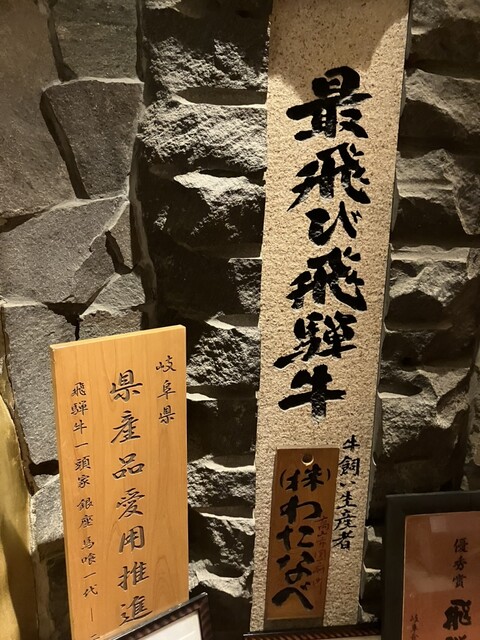 最飛び飛騨牛
牛飼い生産者
(株)わたなべ
岐阜県
県産品愛用推進
飛騨牛一頭家 銀座 馬喰一代
優秀賞
飛